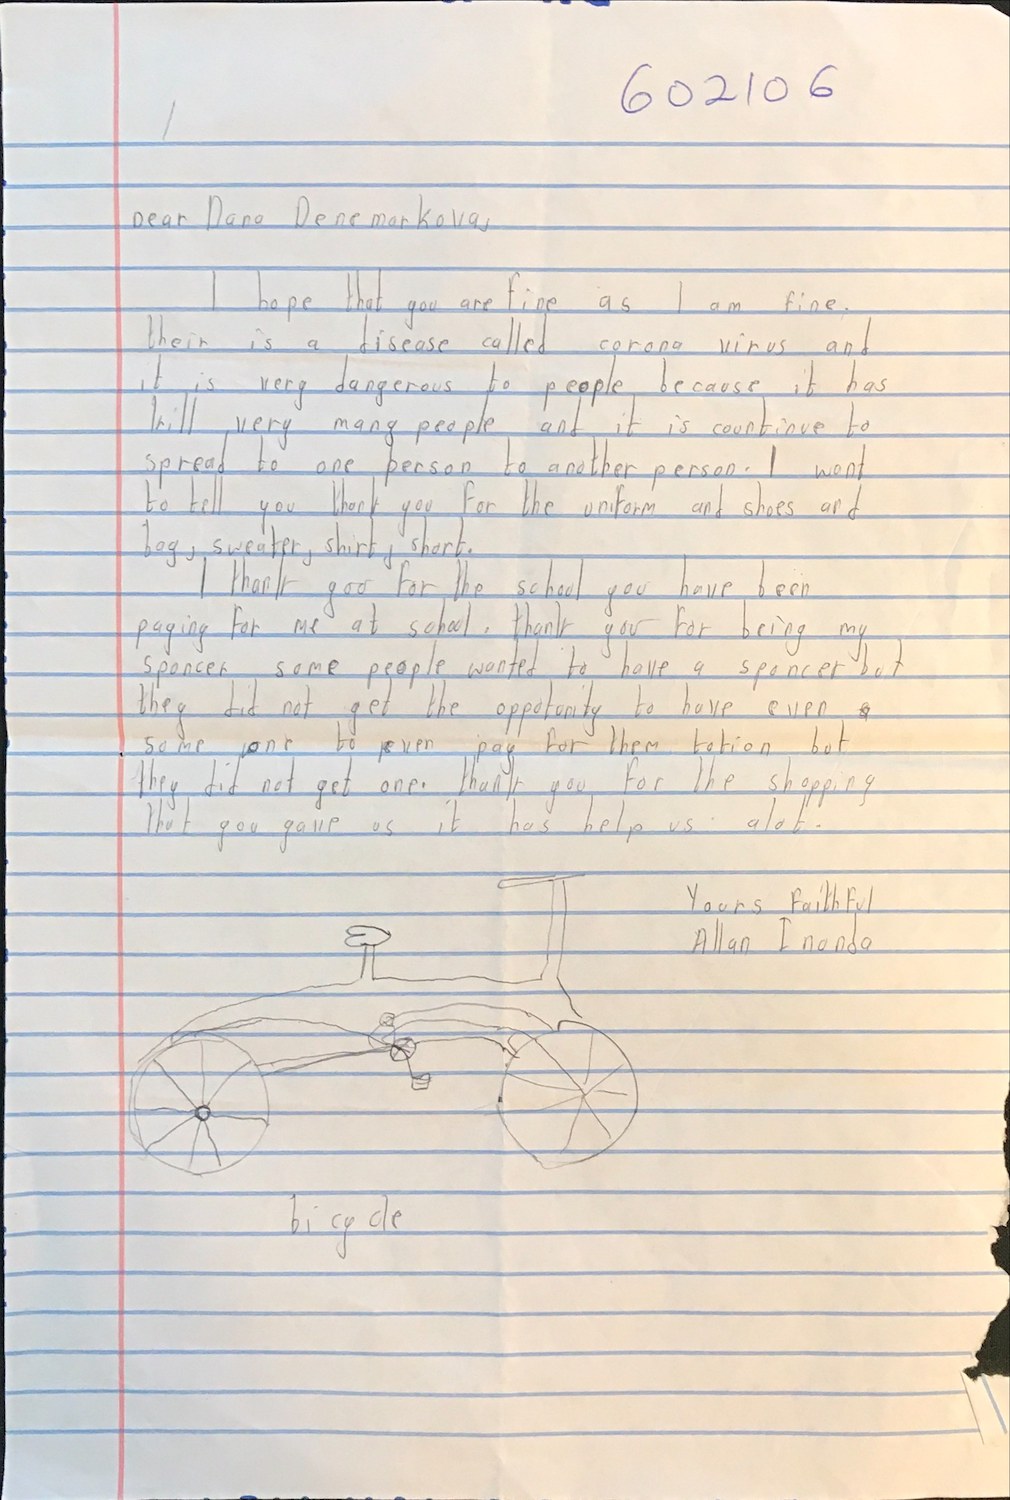 602106
dear Dana Denemarkova,
I hope that you are fine as I am fine.
their is a disease called corona virus and
it is very dangerous to people because it has
kill very many people and it is countinue to
spread to one person to another person. I want
to tell you thank you for the uniform and shoes and
bag, sweater, shirt, short.
I thank goo for the school you have been
paging for me at school. thank you for being my
sponcer some people wanted to have a sponcer but
they did not get the oppotunity to have even a
some one to even pay for them tution but
they did not get one. thank you for the shopping
that you gave us it has help us alot.
Yours faithful
Allan Inanda
bicycle